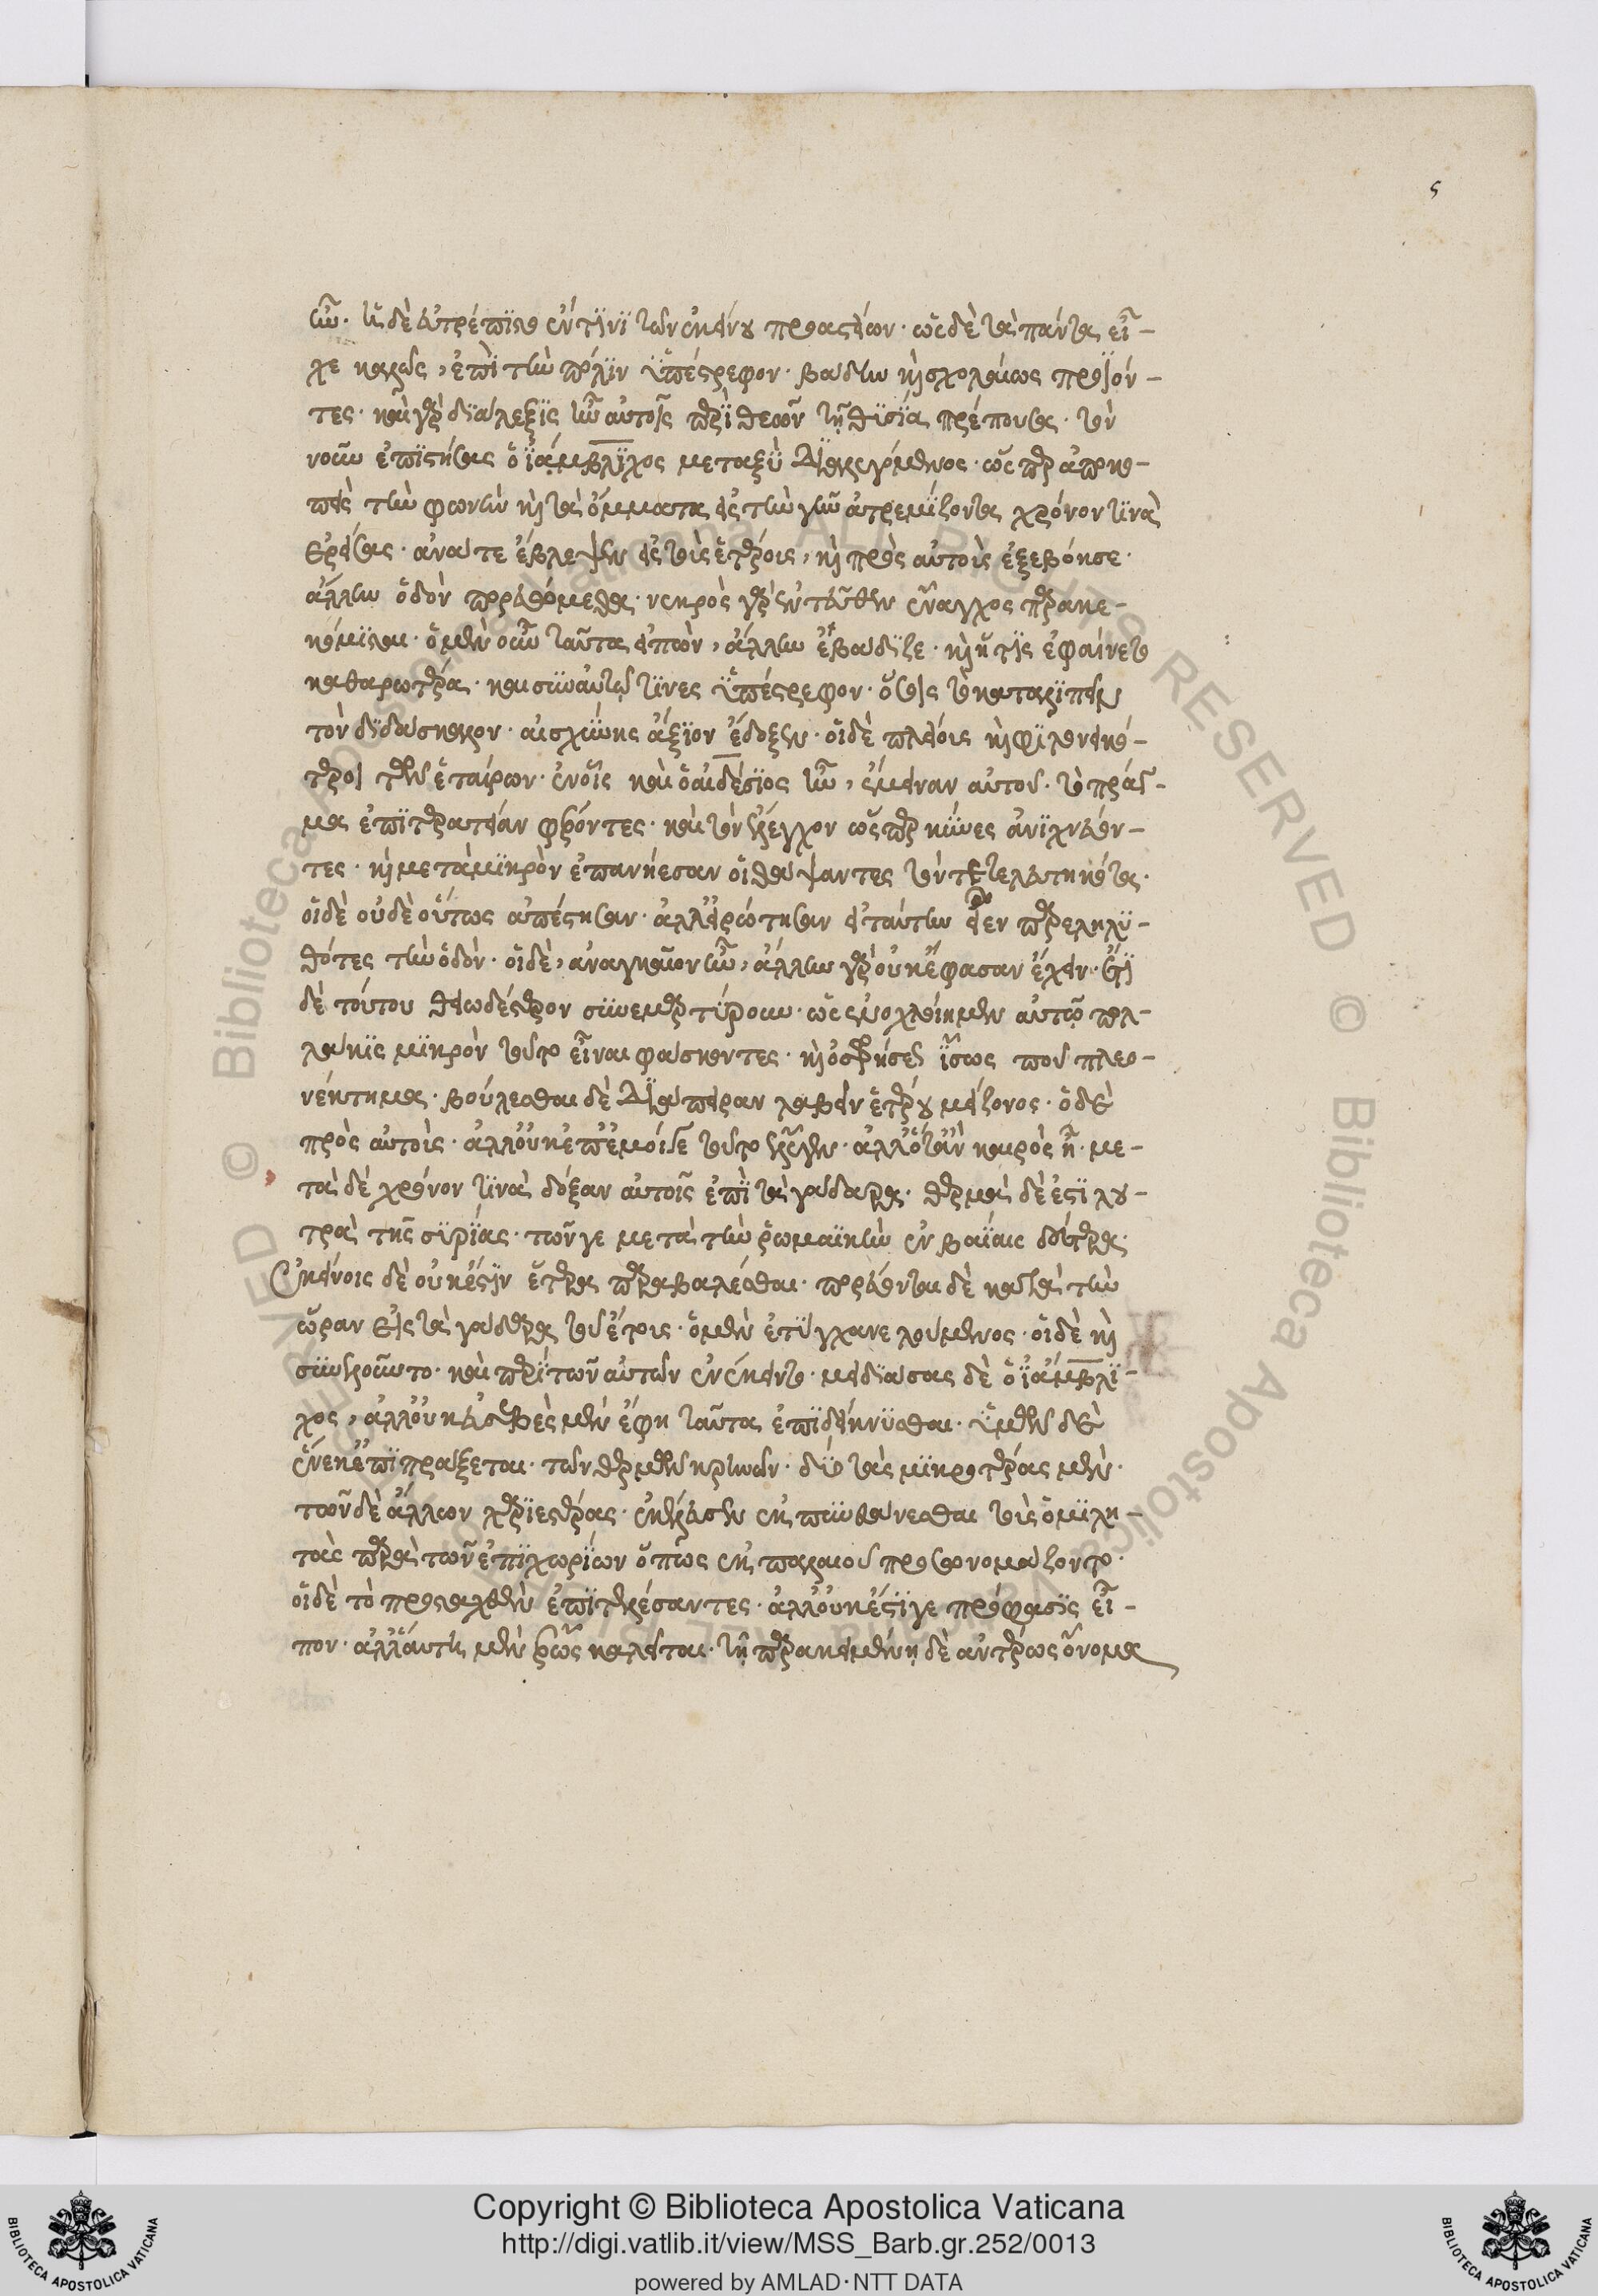 ς
ἦν. τῇ δὲ εὐτρέπιστο ἔν τινι τῶν ἐκείνου προαστείων. ὡς δὲ τὰ πάντα εἶ-
χε καλῶς, ἐπὶ τὴν πόλιν ὑπέστρεφον. βάδην καὶ σχολαίως προϊόν-
τες. καὶ γὰρ διάλεξις ἦν αὐτοῖς περὶ θεῶν τῇ θυσίᾳ πρέπουσα. τὸν
νοῦν ἐπιστήσας ὁ ἰάμβλιχος μεταξὺ διαλεγόμενος. ὥσπερ ἀποκο-
πεὶς τὴν φωνὴν καὶ τὰ ὄμματα εἰς τὴν γῆν ἀτρεμίζοντα χρόνον τινὰ
ἐρείσας. ἀνά τε ἔβλεψεν εἰς τοὺς ἑτέρους, καὶ πρὸς αὐτοὺς ἐξεβόησε.
ἄλλην ὁδὸν πορευώμεθα. νεκρὸς γὰρ ἐντεῦθεν ἔναγχος παρακε-
κόμισται. ὁ μὲν οὖν ταῦτα εἰπὼν, ἄλλην ἐβάδιζε. καὶ ἥτις ἐφαίνετο
καθαρωτέρα. καὶ σὺν αὐτῷ τινες ὑπέστρεφον. ὅσοις τὸ καταλιπεῖν
τὸν διδάσκαλον. αἰσχύνης ἄξιον ἔδοξεν. οἱ δὲ πλείους καὶ φιλονεικό-
τεροι τῶν ἑταίρων. ἐν οἷς καὶ ὁ αἰδέσιος ἦν, ἔμειναν αὐτοῦ. τὸ πρᾶγ-
μα ἐπὶ τερατείαν φέροντες. καὶ τὸν ἔλεγχον ὥσπερ κύνες ἀνιχνεύον-
τες. καὶ μετὰ μικρὸν ἐπανῄεσαν οἱ θάψαντες τὸν τετελευτηκότα.
οἱ δὲ οὐδὲ οὕτως ἀπέστησαν. ἀλλ' ἠρώτησαν εἰ ταύτην εἶεν παρεληλυ-
θότες τὴν ὁδόν. οἱ δὲ, ἀναγκαῖον ἦν, ἄλλην γὰρ οὐκ ἔφασαν ἔχειν. ἔτι
δὲ τούτου θειωδέστερον συνεμαρτύρουν. ὡς ἐνοχλοίημεν αὐτῷ πολ-
λάκις μικρὸν τοῦτο εἶναι φάσκοντες. καὶ ὀσφρήσεως ἴσως που πλεο-
νέκτημα. βούλεσθαι δὲ διάπειραν λαβεῖν ἑτέρου μείζονος. ὁ δὲ
πρὸς αὐτοὺς. ἀλλ' οὐκ ἐπ' ἐμοί γε τοῦτο ἔλεγεν. ἀλλ' ὅταν καιρὸς ᾖ. με-
τὰ δὲ χρόνον τινὰ δόξαν αὐτοῖς ἐπὶ τὰ γάδαρα. θερμὰ δέ ἐστι λου-
τρὰ τῆς συρίας. τῶν γε μετὰ τὴν ῥωμαϊκὴν ἐν βαΐαις δεύτερα.
Ἐκείνοις δὲ οὐκ ἔστιν ἕτερα παραβαλέσθαι. πορεύονται δὲ κατὰ τὴν
ὥραν εἰς τὰ γάδαρα τοῦ ἔτους. ὁ μὲν ἐτύγχανε λούμενος. οἱ δὲ καὶ
συνελοῦντο. καὶ περὶ τῶν αὐτῶν ἐνέκειντο. μειδιάσας δὲ ὁ ἰάμβλι-
χος, ἀλλ' οὐκ εὐσεβὲς μὲν ἔφη ταῦτα ἐπιδείκνυσθαι. ὑμῶν δὲ
ἕνεκα ἐπιπράξεται. τῶν θερμῶν κρηνῶν. δύο τὰς μικροτέρας μὲν.
τῶν δὲ ἄλλων χαριεστέρας. ἐκέλευσεν ἐκπυνθάνεσθαι τοὺς ὁμιλη-
τὰς παρὰ τῶν ἐπιχωρίων ὅπως ἐκ παλαιοῦ προσονομάζοντο.
οἱ δὲ τὸ προσταχθὲν ἐπιτελέσαντες. ἀλλ' οὐκ ἔστι γε πρόφασις εἶ-
πον. ἀλλ' αὕτη μὲν ἔρως καλεῖται. τῇ παρακειμένῃ δὲ ἀντέρως ὄνομα
Copyright © Biblioteca Apostolica Vaticana
http://digi.vatlib.it/view/MSS_Barb.gr.252/0013
powered by AMLAD·NTT DATA